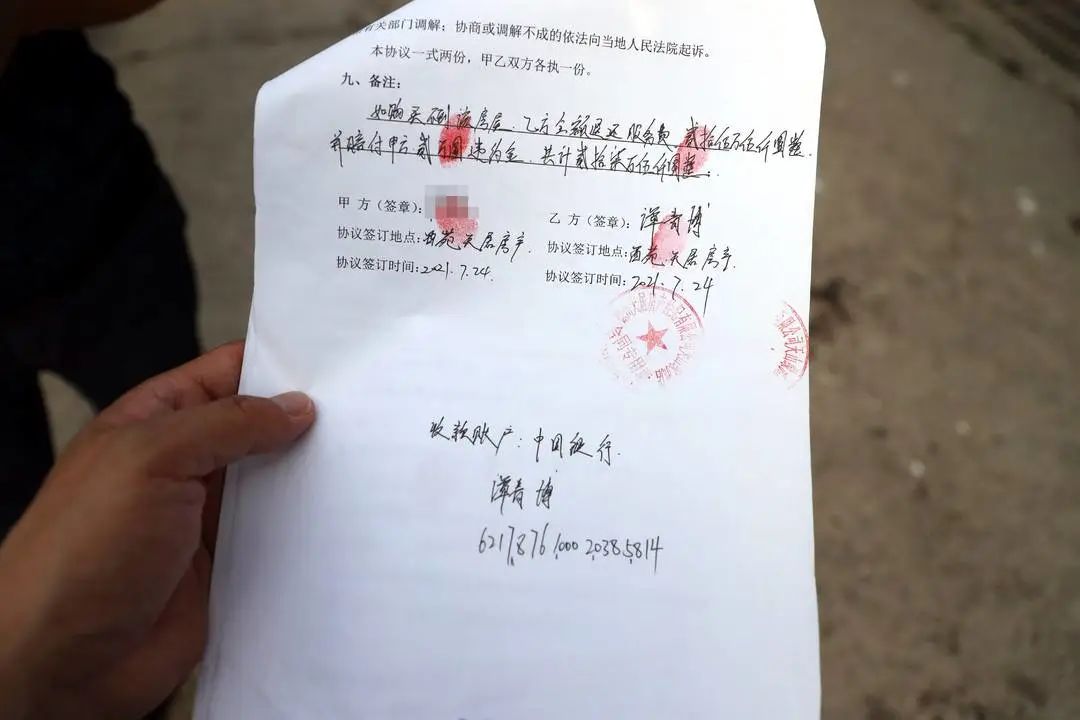 有关部门调解；协商或调解不成的依法向当地人民法院起诉。
本协议一式两份，甲乙双方各执一份。
九、备注：
如购买不到该房屋，乙方全额退还服务费贰拾伍万伍仟圆整.
并赔付甲方贰万圆违约金，共计贰拾柒万伍仟圆整。
甲 方（签章）：
乙 方（签章）：谭青博
协议签订地点：西苑天居房产.
协议签订地点：西苑天居房产.
协议签订时间：2021.7.24
协议签订时间：2021.7.24
合同专用章
收款账户：中国银行.
谭青博
6217876100020385814